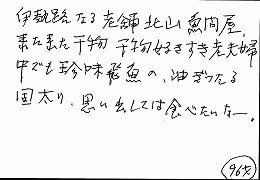 伊勢路なる老舗北山魚問屋、
来た来た干物 干物好きすき老夫婦
中でも珍味飛魚の、油ぎったる
固太り、思い出しては食べたいなー。
(96才)